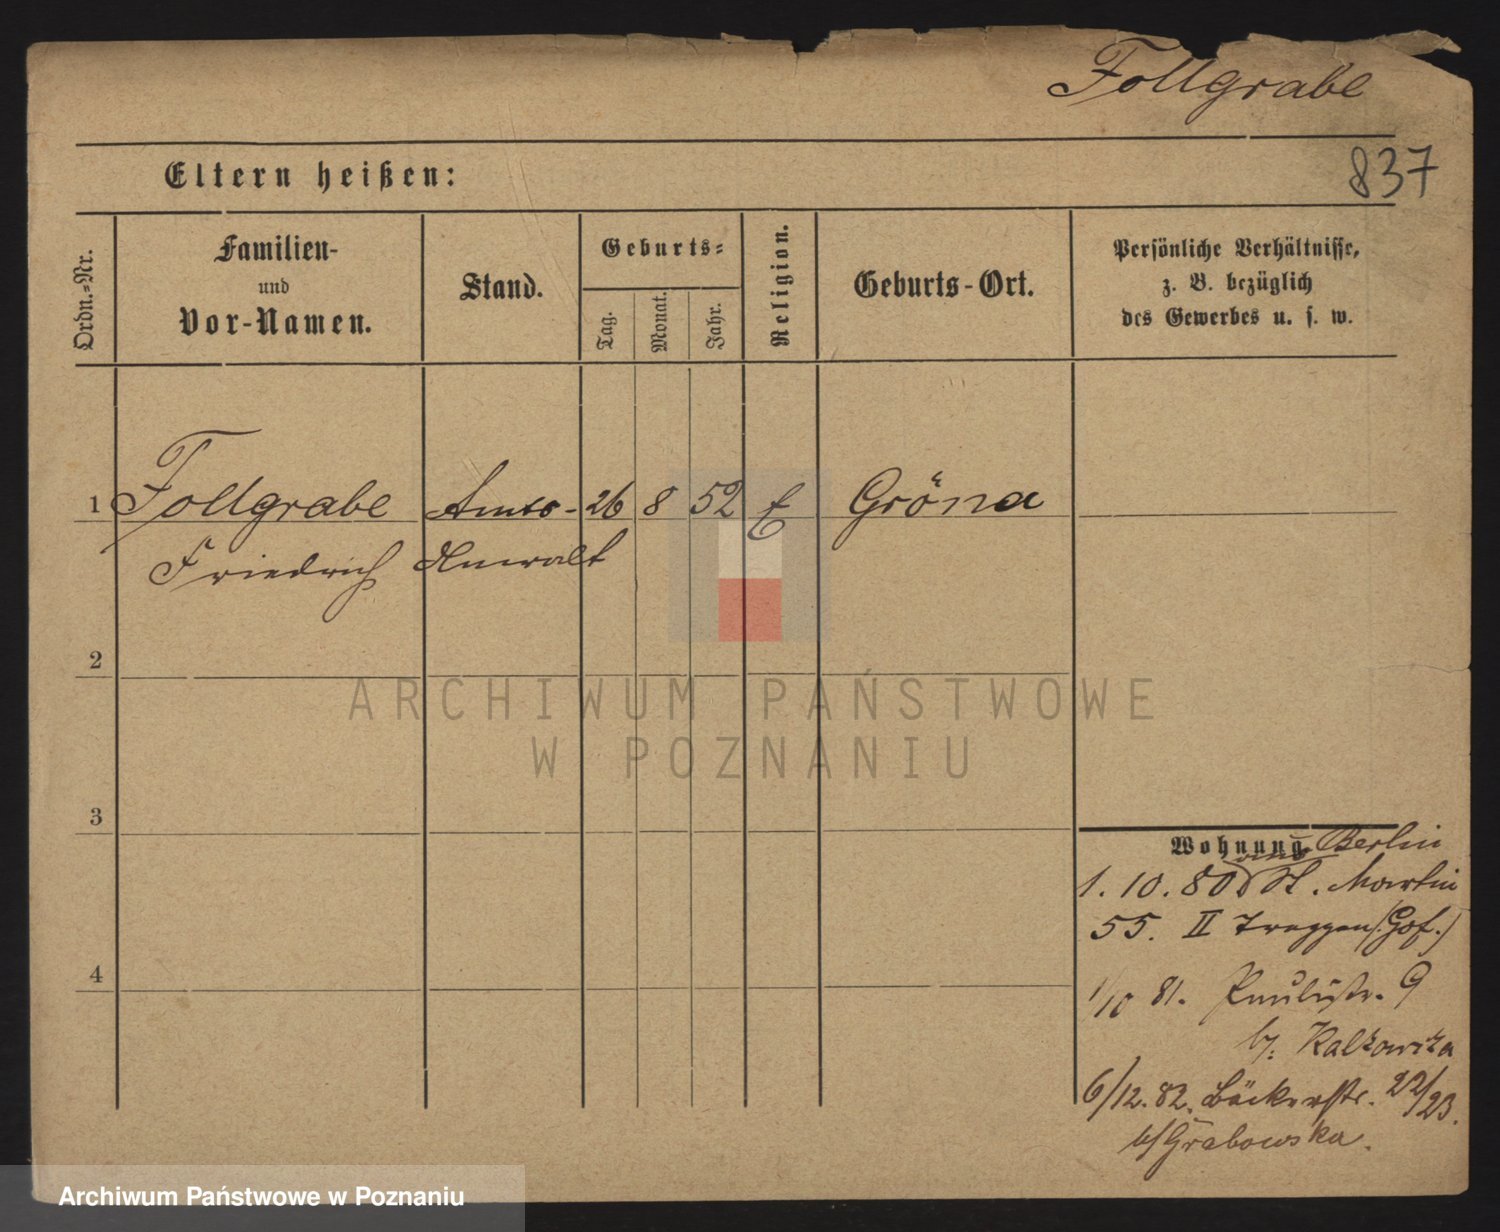 Follgrabe
Eltern heißen:
837
Ordn.-Nr.
Familien-
und
Vor-Namen.
Stand.
Geburts-
Tag.
Monat.
Jahr.
Religion.
Geburts-Ort.
Persönliche Verhältnisse,
z. B. bezüglich
des Gewerbes u. s. w.
1 Follgrabe Amts- 26 8 52 E Gröna
Friedrich Anwalt
2
ARCHIWUM PAŃSTWOWE
W POZNANIU
3
4
Wohnung
aus Berlin
1. 10. 80 St. Martin
55. II Treppen (Hof.)
1/10 81. Paulistr. 9
b/. Kalkowska
6/12. 82. Bäckerstr. 22/23.
b/ Grabowska.
Archiwum Państwowe w Poznaniu